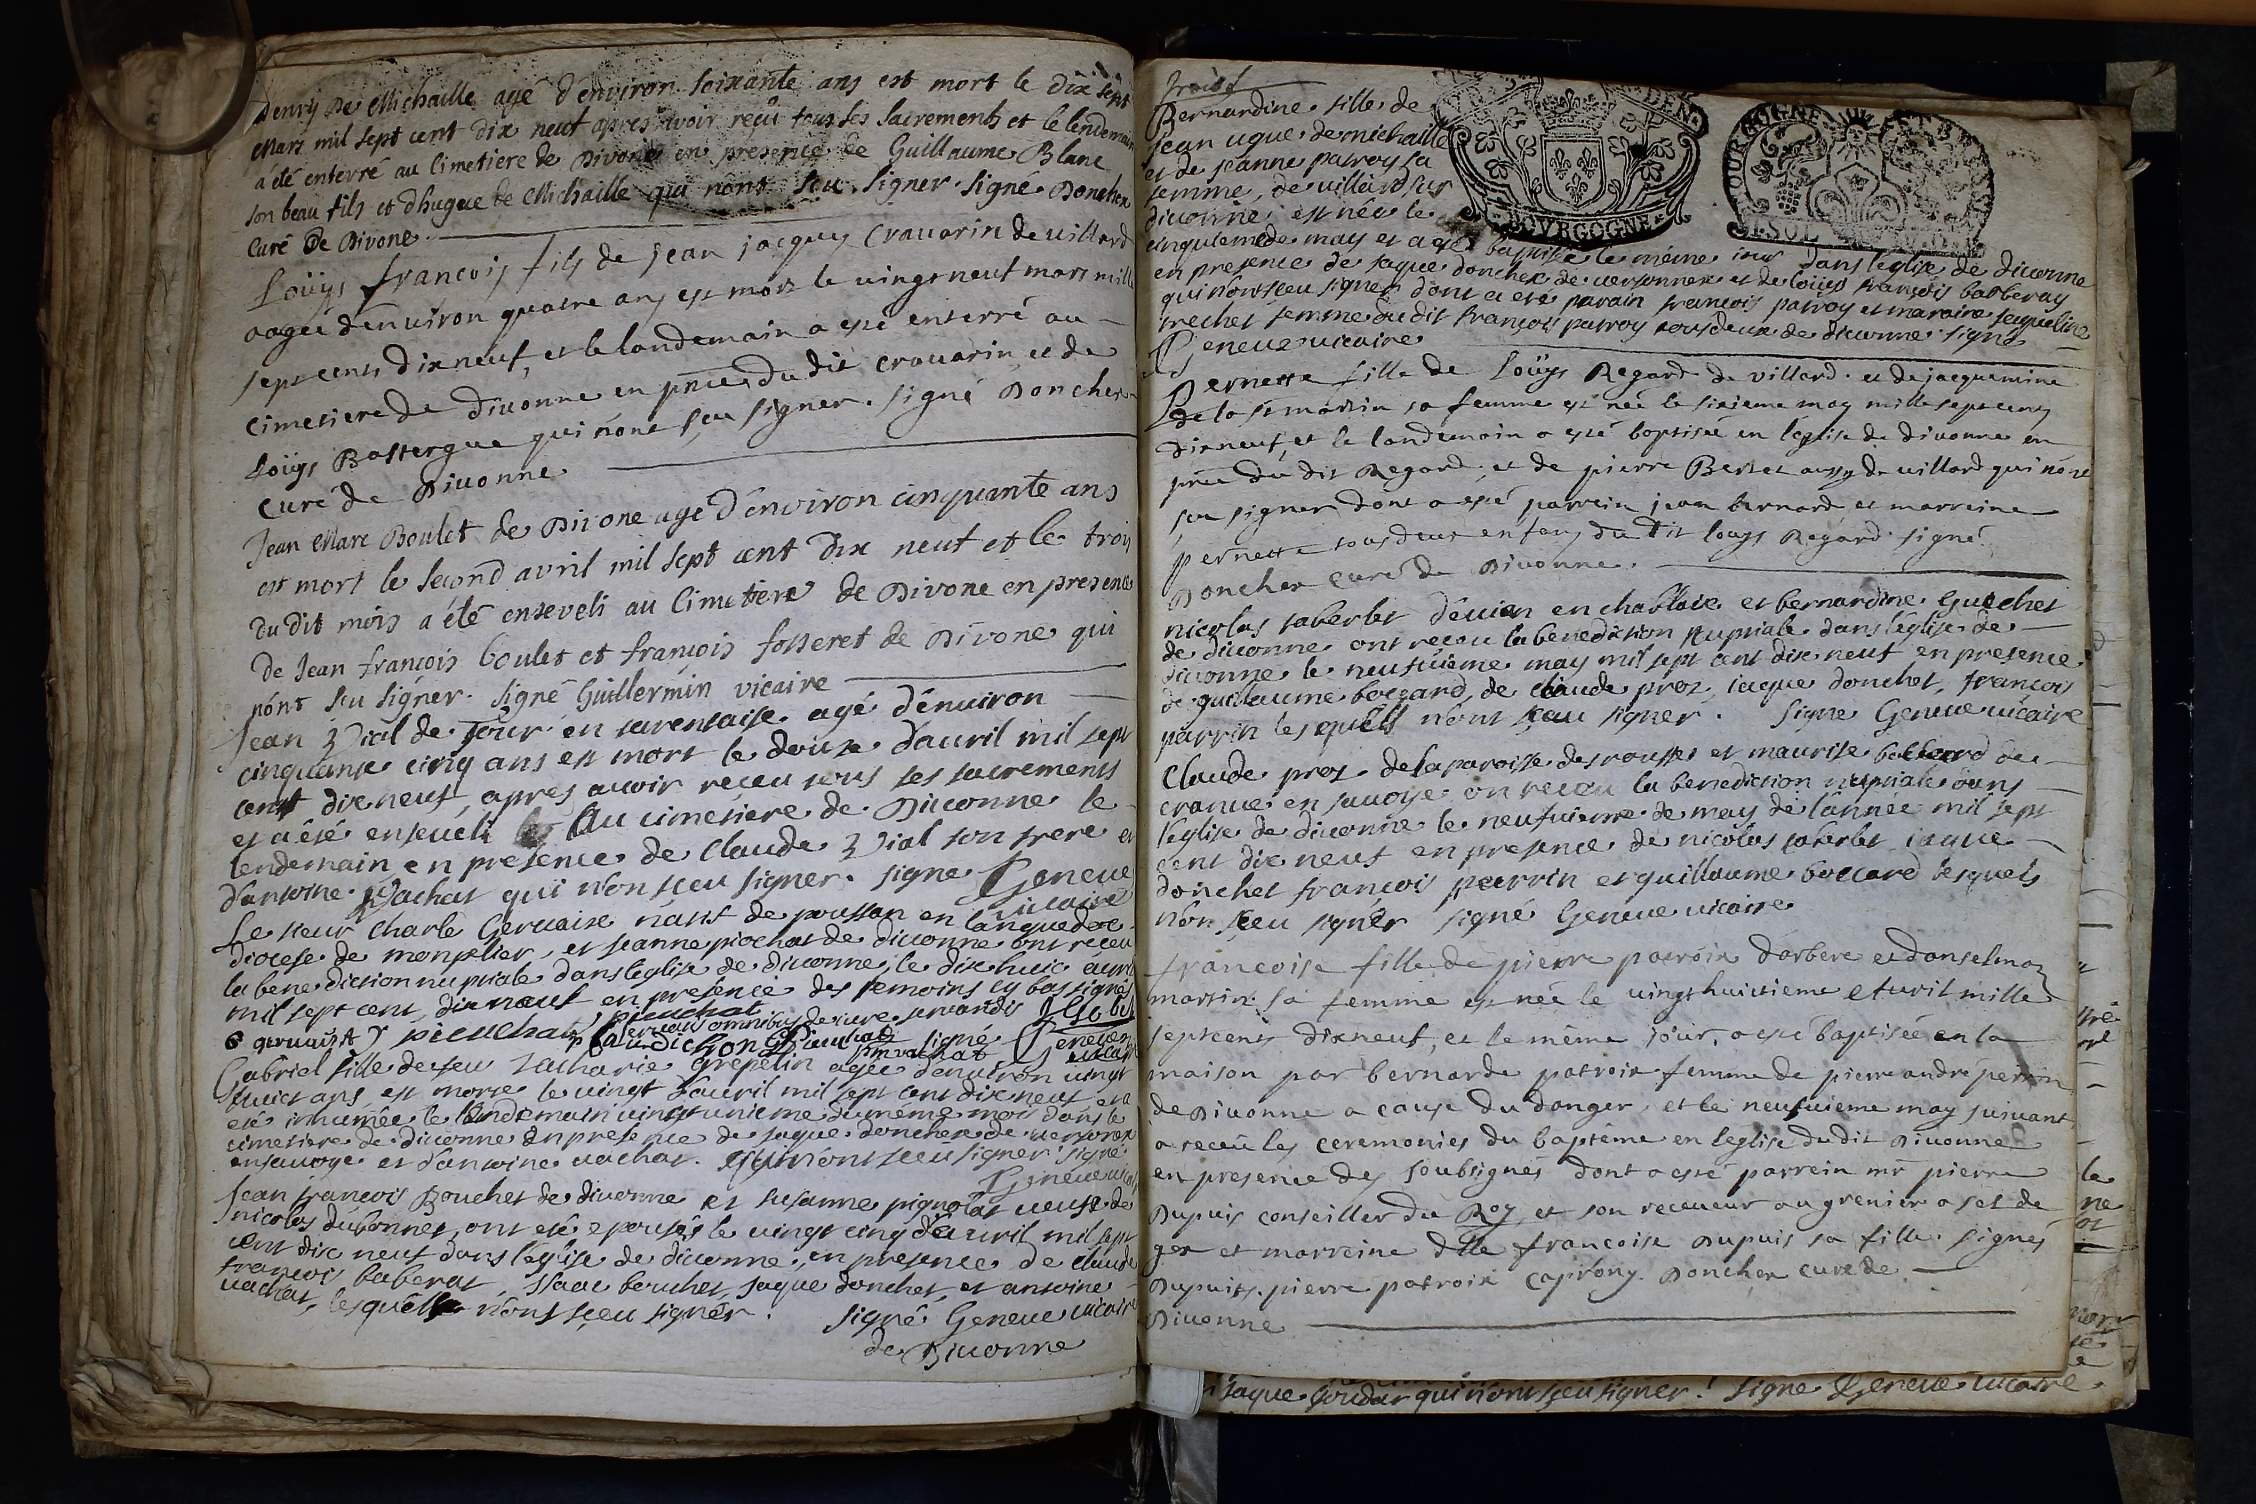 Henry De Michaille agé d'environ soixante ans est mort le dix sept
Mars mil sept cent dix neuf apres avoir reçû tous ses sacrements et le lendemain
a été enterré au Cimetiere de Divone en presence de Guillaume Blanc
son beau fils et d'hugue de Michaille qui n'ont sçu signer. signé Doncher
Curé de Divone.
Loüys francois fils de jean jacques Crauarin de uillard
aagée denuiron quatre ans est mort le uingt neuf mars mille
sept cents dixneuf, et le landemain a esté enterré au
cimetiere de diuonne en pnce du dit crauarin et de
Loüys Bastergue qui n'ont sçu signer. signé Doncher
Curé de Diuonne
Jean Marc Boulet de Divone agé d'environ cinquante ans
est mort le second avril mil sept cent dix neuf et le trois
du dit mois a été enseveli au Cimetiere de Divone en presence
de Jean françois boulet et françois fosseret de Divone qui
n'ont sçu signer. signé Guillermin vicaire
Jean Vial de Tour en tarentaise agé d'enuiron
cinquante cinq ans est mort le douze d'auril mil sept
cent dix neuf, apres auoir receu tous ses sacrements
et a été enseueli au cimetiere de Diuonne le
lendemain en presence de Claude Vial son frere et
d'antoine Vachat qui n'on sceu signer. signe Geneue
uicaire
Le sieur Charle Geruaise natif de poussan en languedoc
diocese de monpelier, et jeanne piochat de diuonne ont receu
la benediction nuptiale dans leglise de diuonne, le dixhuic auril
mil sept cent dix neuf en presence des temoins cy bas signés
geruaise pieuchat
signé Geneue
uicaire
Gabriel fille de feu Zacharie Grepelin agée d'enuiron uingt
huict ans, est morte le uingt d'auril mil sept cent dix neuf et a
eté inhumée le lendemain uingt unieme du meme mois dans le
cimetiere de diuonne en presence de jaque doncher de uersonex
en sauoye et d'antoine uachat. qui n'ont sceu signer signe
Geneue uicaire
Jean françois Bouchet de diuonne et susanne pignolat ueufe de
nicolas dubonnet, ont eté epousés le uingt cinq d'auril mil sept
cent dix neuf dans l'eglise de diuonne, en presence de claude
françois baberat, Isaac bouchet, jaque donchet, et antoine
uachat, lesquels n'ont sceu signer. signé Geneue uicaire
de Diuonne
Bernardine fille de
jean ugue de michaille
et de jeanne patroy sa
femme, de uillard sur
diuonne, est née le
cinquieme de may et a eté baptisée le même jour dans l'eglise de diuonne
en presence de jaque doncher de uersonnex et de louis françois barberay
qui n'ont sceu signer dont a eté parain françois patroy et maraine jaqueline
trechet femme du dit françois patroy tous deux de diuonne signé
Geneue uicaire
BOVRGOGNE
BOURGOGNE
SOL
Pernette fille de Loüys Regard de villard et de jacquemine
de la st martin sa femme est née le sixieme may mille sept cens
dixneuf, et le landemain a esté baptisée en leglise de diuonne en
pnce du dit Regard et de pierre Bersét aussy de uillard qui n'ont
sçu signer dont a esté parrein jean bernard et marreine
pernette tous deux enfans du dit louys Regard. signé
Doncher curé de Diuonne.
nicolas taberlet d'euian en chablaix et bernardine Guechet
de diuonne ont receu la benediction nuptiale dans l'eglise de
diuonne le neufuieme may mil sept cent dix neuf en presence
de guillaume boccard, de claude proz, jaque donchet, françois
parrin lesquels n'ont sceau signer. signe Geneue uicaire
Claude proz de la paroisse des rousses et maurise boccard de
cranue en sauoye on receu la benediction nuptiale dans
l'eglise de diuonne le neufuieme de may de l'année mil sept
cent dix neuf en presence de nicolas taberlet jaque
donchet françois perrin et guillaume boccard lesquels
n'on sceu signer signé Geneue uicaire
francoise fille de pierre patroix d'arbere et d'anselmaz
martin sa femme est née le uingt huitieme Auril mille
sept cens dixneuf, et le même jour, a esté baptisée en la
maison par bernarde patroix femme de pierre andré perrin
de Diuonne a cause du danger, et le neufuieme may suiuant
a receu les ceremonies du baptême en leglise du dit Diuonne
en presence des soubsignés dont a esté parrein mr pierre
Dupuis conseiller du Roy et son receueur au grenier a sel de
gex et marreine dlle francoise Dupuis sa fille. signés
Dupuits. pierre patroix caprony. Doncher curé de
Diuonne
jaque goudar qui n'ont sceu signer! signe Geneue uicaire.